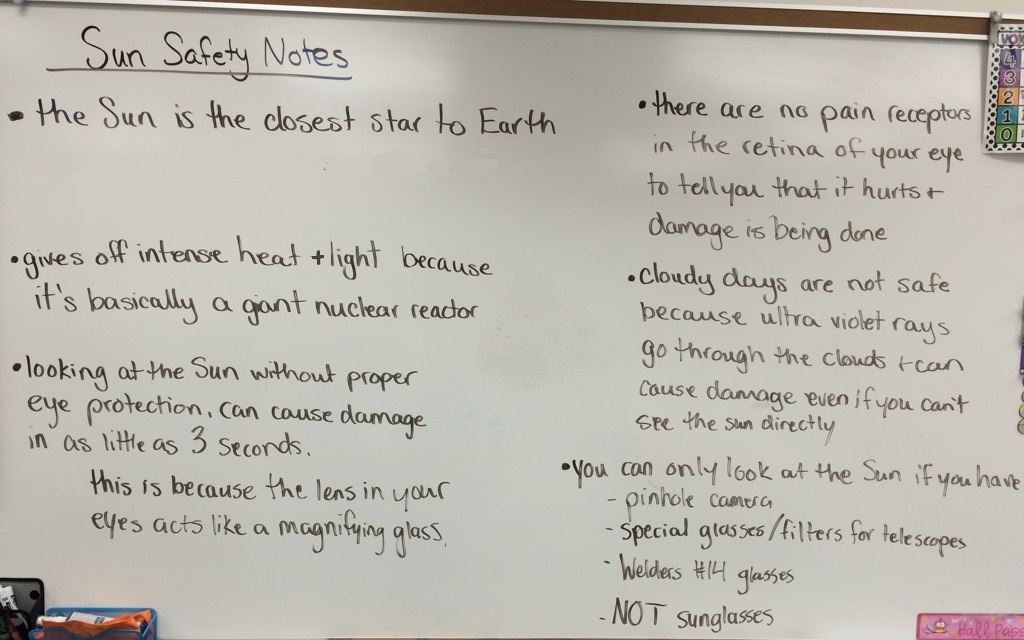 Sun Safety Notes
• the Sun is the closest star to Earth
• gives off intense heat + light because
it's basically a giant nuclear reactor
• looking at the Sun without proper
eye protection, can cause damage
in as little as 3 seconds.
this is because the lens in your
eyes acts like a magnifying glass.
• there are no pain receptors
in the retina of your eye
to tell you that it hurts +
damage is being done
• cloudy days are not safe
because ultra violet rays
go through the clouds + can
cause damage even if you can't
see the sun directly
• you can only look at the Sun if you have
- pinhole camera
- special glasses/filters for telescopes
- Welders #14 glasses
- NOT sunglasses
4
3
2
1
0
Hall Pass